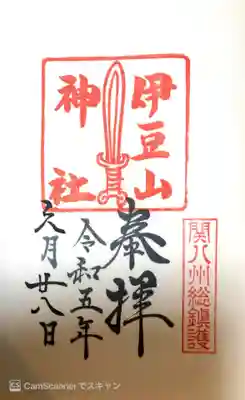 伊豆山
神社
奉拝
関八州総鎮護
令和五年
六月廿八日
CamScannerでスキャン